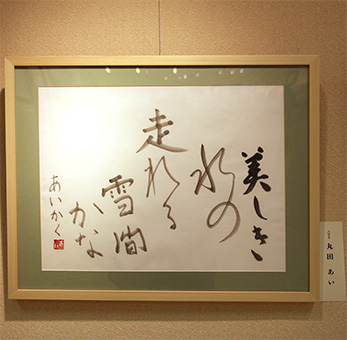 美しき
水の
走れる
雪間
かな
あいかく
丸田 あい